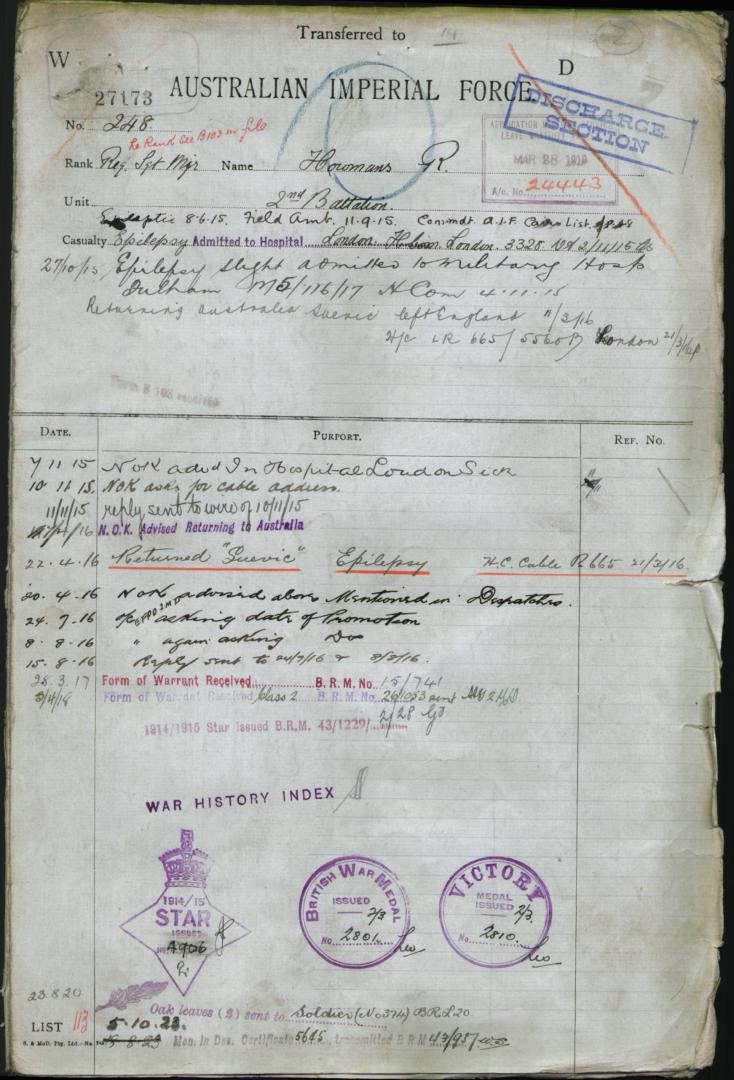 Transferred to
14
2
W
D
27173
AUSTRALIAN IMPERIAL FORCE.
DISCHARGE SECTION
No. 248.
Re Rank See B103 in file
MAR 28 1919
A/c. No. 24443
Rank Reg. Sgt Mjr Name Howmans R.
Unit 2nd Battalion.
Epileptic 8.6.15. Field Amb. 11.9.15. Commdt. A.I.F. List
Casualty Epilepsy Admitted to Hospital London. London. 3328 2/11/15
27/10/15 Epilepsy slight admitted to Military Hosp
Fulham M5/116/17 H Com 4.11.15
Returning Australia Suevic left England "/2/16
H/C LR 665/5560B London 21/3/16
Form B 103 received
DATE.
PURPORT.
REF. NO.
7 11 15 NOK advd In Hospital London Sick
10 11 15. NOK asks for cable address. "
11/11/15 reply sent to wire of 10/11/15
N.O.K. Advised Returning to Australia
22.4.16 Returned "Suevic" Epilepsy H.C. Cable R 665 21/3/16.
20.4.16 NOK advised above Mentioned in Despatches.
24.7.16 asking date of Promotion
8.8.16 " again asking Do
15.8.16 Reply sent to 24/7/16 & 8/8/16.
28.3.17 Form of Warrant Received B.R.M. No. 15/741
3/4/18 Form of Warrant Received Class 2 B.R.M. No. 26/1053 sent
1914/1915 Star Issued B.R.M. 43/1229/
2/28
WAR HISTORY INDEX
1914/15
STAR
ISSUED
No. 4906
BRITISH WAR MEDAL
ISSUED
2/3
No. 2801.
VICTORY
MEDAL
ISSUED 2/3.
No. 2810.
23.8.20 Oak leaves (2) sent to Soldier (No 374) BRL 20
LIST 113
5.10.23.
Men. in Des. Certificate 5645 transmitted B R M 43/957
S. & McD. Pty. Ltd.—No.